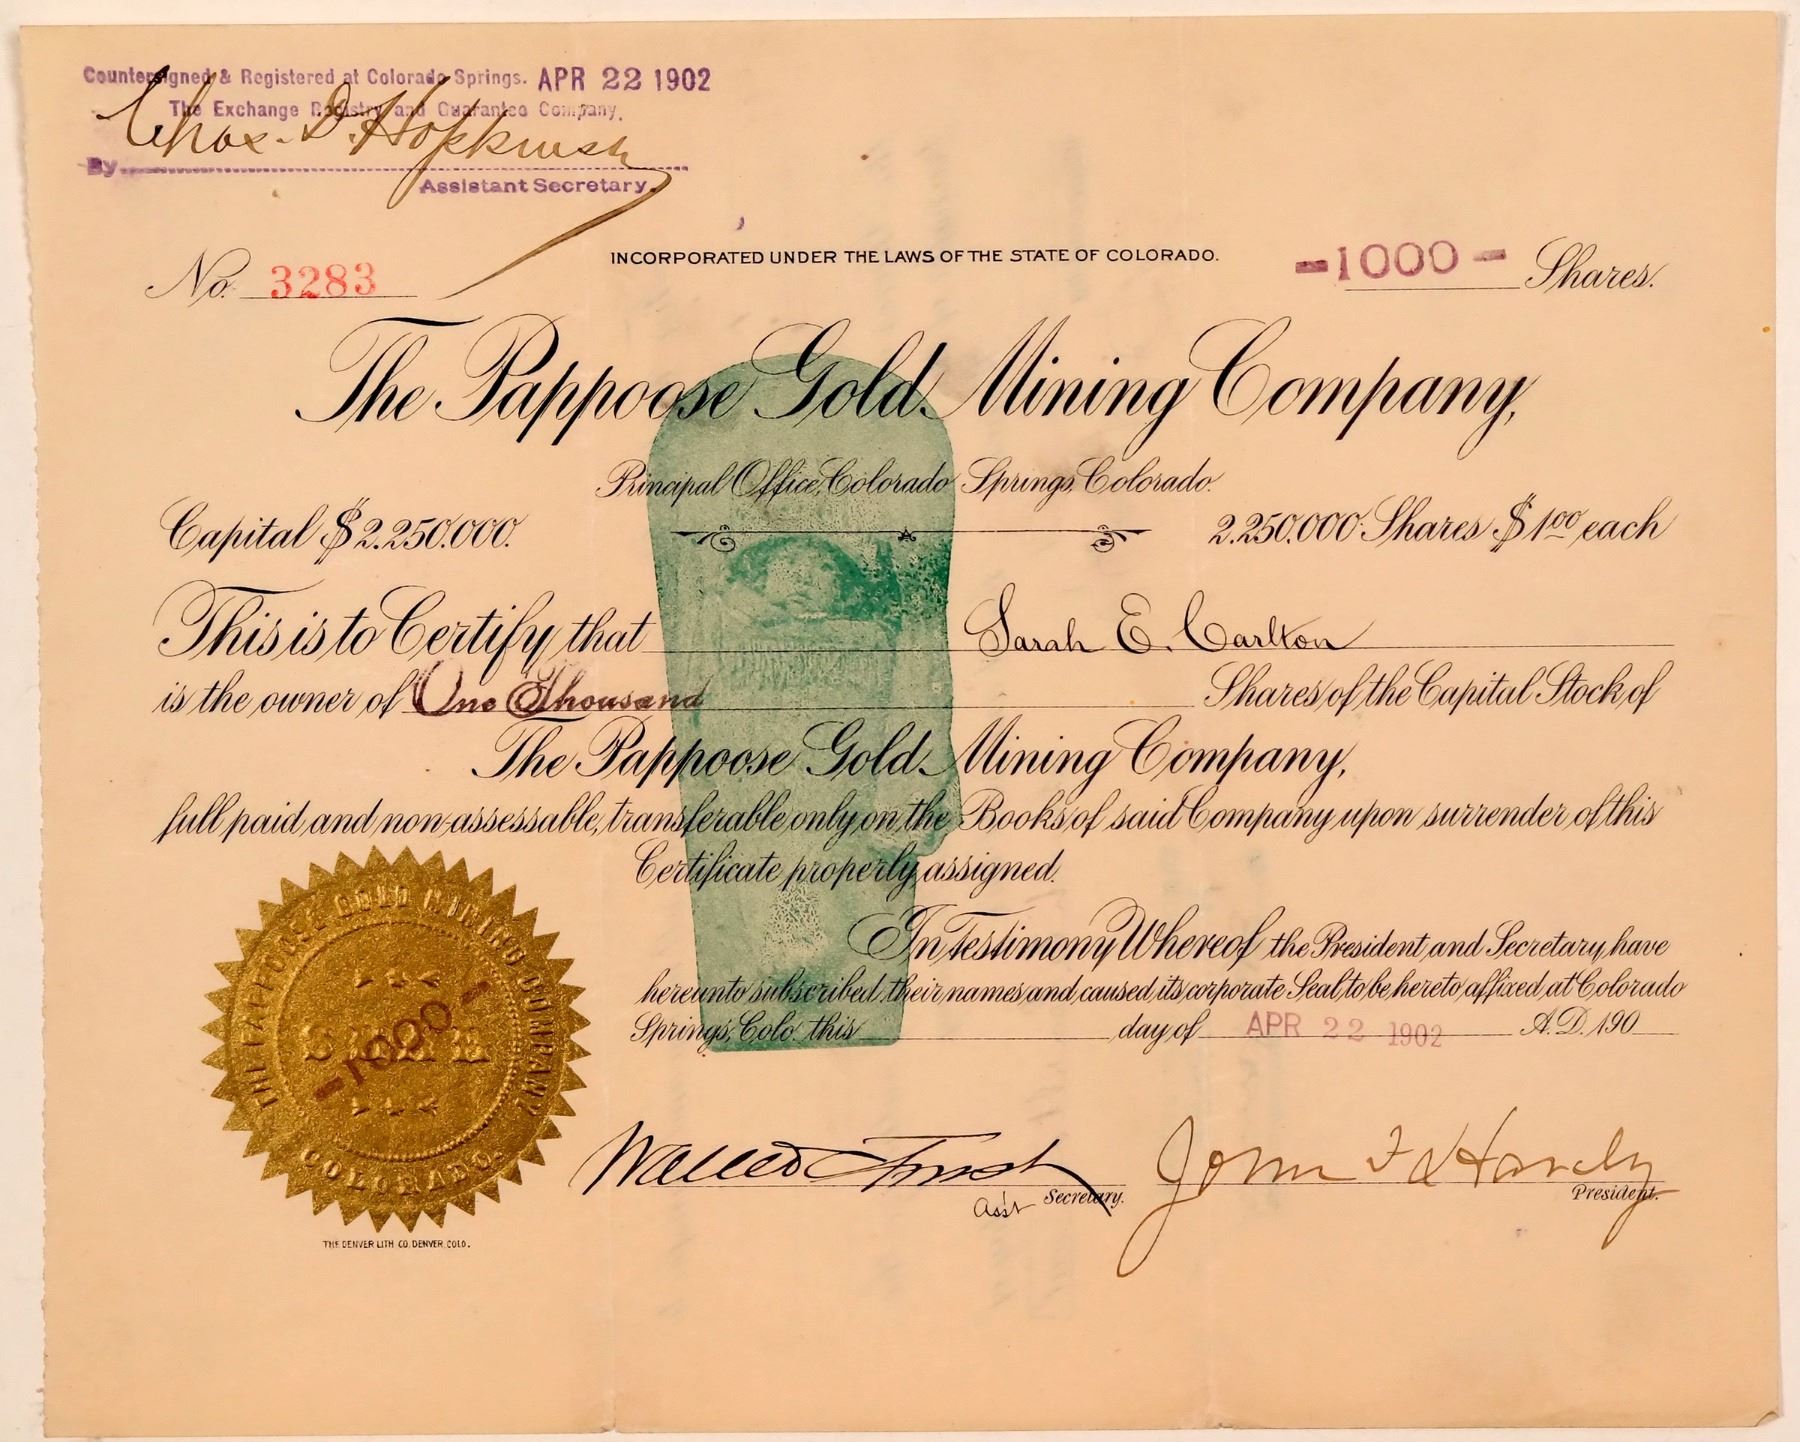 Countersigned & Registered at Colorado Springs. APR 22 1902
The Exchange Registry and Guarantee Company.
Chas. D. Hopkins
By
Assistant Secretary.
INCORPORATED UNDER THE LAWS OF THE STATE OF COLORADO.
No. 3283
-1000- Shares.
The Pappoose Gold Mining Company,
Principal Office, Colorado Springs, Colorado.
Capital $2.250.000.
2.250.000 Shares $1.00 each
This is to Certify that Sarah E. Carlton
is the owner of One Thousand Shares of the Capital Stock of
The Pappoose Gold Mining Company,
full paid and non-assessable, transferable only on the Books of said Company upon surrender of this
Certificate properly assigned.
In Testimony Whereof the President and Secretary, have
hereunto subscribed their names and caused its corporate Seal to be hereto affixed at Colorado
Springs, Colo. this day of APR 22 1902 A.D. 190
THE PAPPOOSE GOLD MINING COMPANY
SEAL
-1000-
COLORADO.
Asst Secretary.
President.
THE DENVER LITH CO. DENVER, COLO.